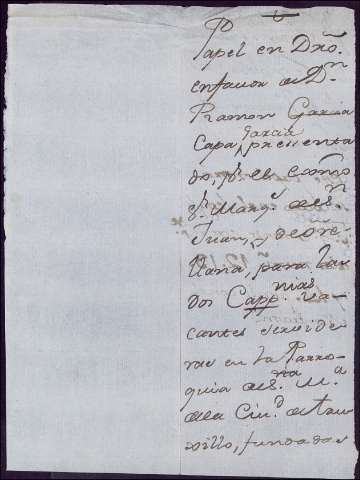 Papel en Dro.
enfavor de Dn
Ramon Garcia
Capa, Garcia presenta
do, pr. el Exmo
Sr. Marqs. de Sn
Juan, y de Ore
llana, para las
dos Cappnias. va-
cantes servide
ras en la Parro-
quia de Sna. Ma
de la Ciud. de Tru
xillo, fundadas